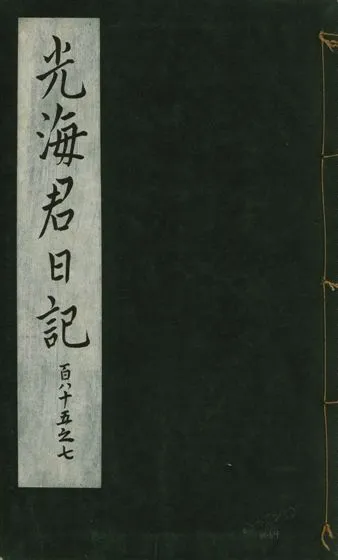 光海君日記
百八十五之七